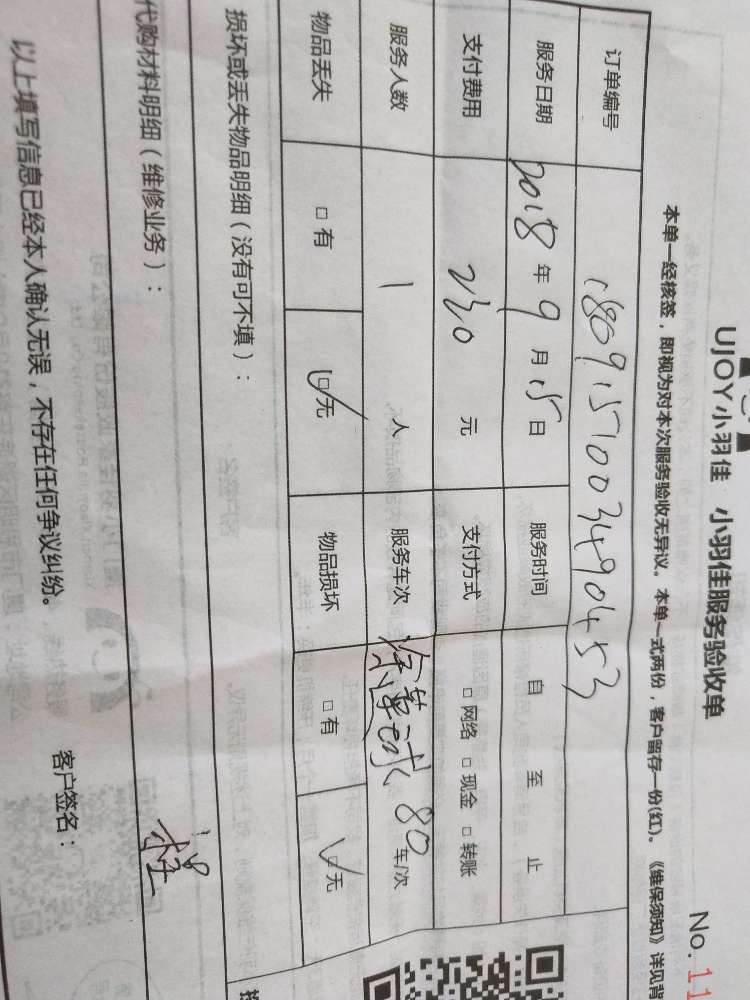 UJOY小羽佳 小羽佳服务验收单
No. 11
本单一经核签，即视为对本次服务验收无异议。本单一式两份，客户留存一份(红)。《维保须知》详见背
订单编号 180915100349 0453
服务日期 2018年9月15日 服务时间 自 至 止
支付费用 230 元 支付方式 □网络 □现金 □转账
服务人数 1 人 服务车次 80 车/次
物品丢失 □有 ☑无 物品损坏 □有 ☑无
损坏或丢失物品明细（没有可不填）：
代购材料明细（维修业务）：
以上填写信息已经本人确认无误，不存在任何争议纠纷。 客户签名：